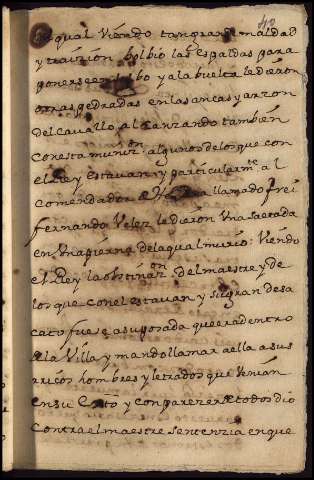 el qual Viendo tan gran maldad
y traizion bolbio las espaldas para
ponerse en y a la buelta le dieron
otras pedradas en las ancas y arzon
del cavallo alcanzando tambien
con esta munizon algunos de los que con
el Rey estavan y particularmte al
comendador llamado frei
fernando Velez le dieron Una saetada
en Una pierna de la qual murio: Viendo
el Rey la obstinazon del maestre y de
los que con el estavan y su gran desa
cato fuese a su posada que era dentro
de la Villa y mando llamar a ella a sus
ricos hombres y letrados que Venian
en su y en parezer de todos dio
contra el maestre sentenzia en que